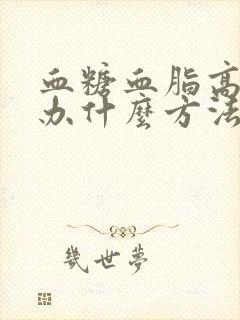 血糖血脂高
办什麼方法
幾世夢